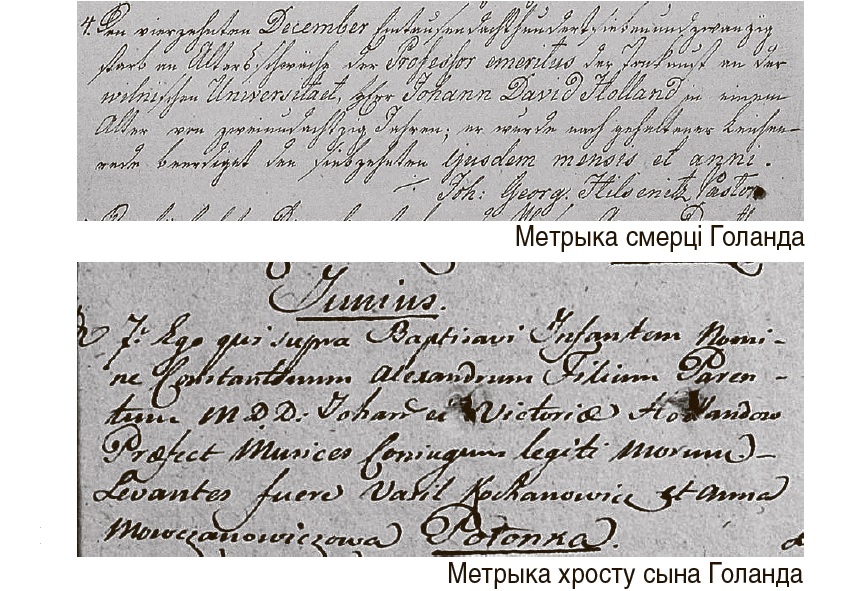 4. Den vierzehnten December Eintausendachthundertsiebenundzwanzig
starb an Altersschwäche der Professor emeritus der Tonkunst an der
wilnischen Universitaet, Herr Johann David Holland in einem
Alter von zweiundachtzig Jahren; er wurde nach gehaltener Leichen-
rede beerdiget den siebzehnten ejusdem mensis et anni.
Joh: Georg. Pastor
Метрыка смерці Голанда
Junius.
7. Ego qui supra Baptisavi Infantem Nomi-
ne Constantinum Alexandrum Filium Paren-
tum M.D.D: Victoriæ Hollandow
Præfect Musices Coniugum legiti morum
Levantes fuere Vasil Kochanowicz et Anna
Mowczanowiczowa Połonka.
Метрыка хросту сына Голанда